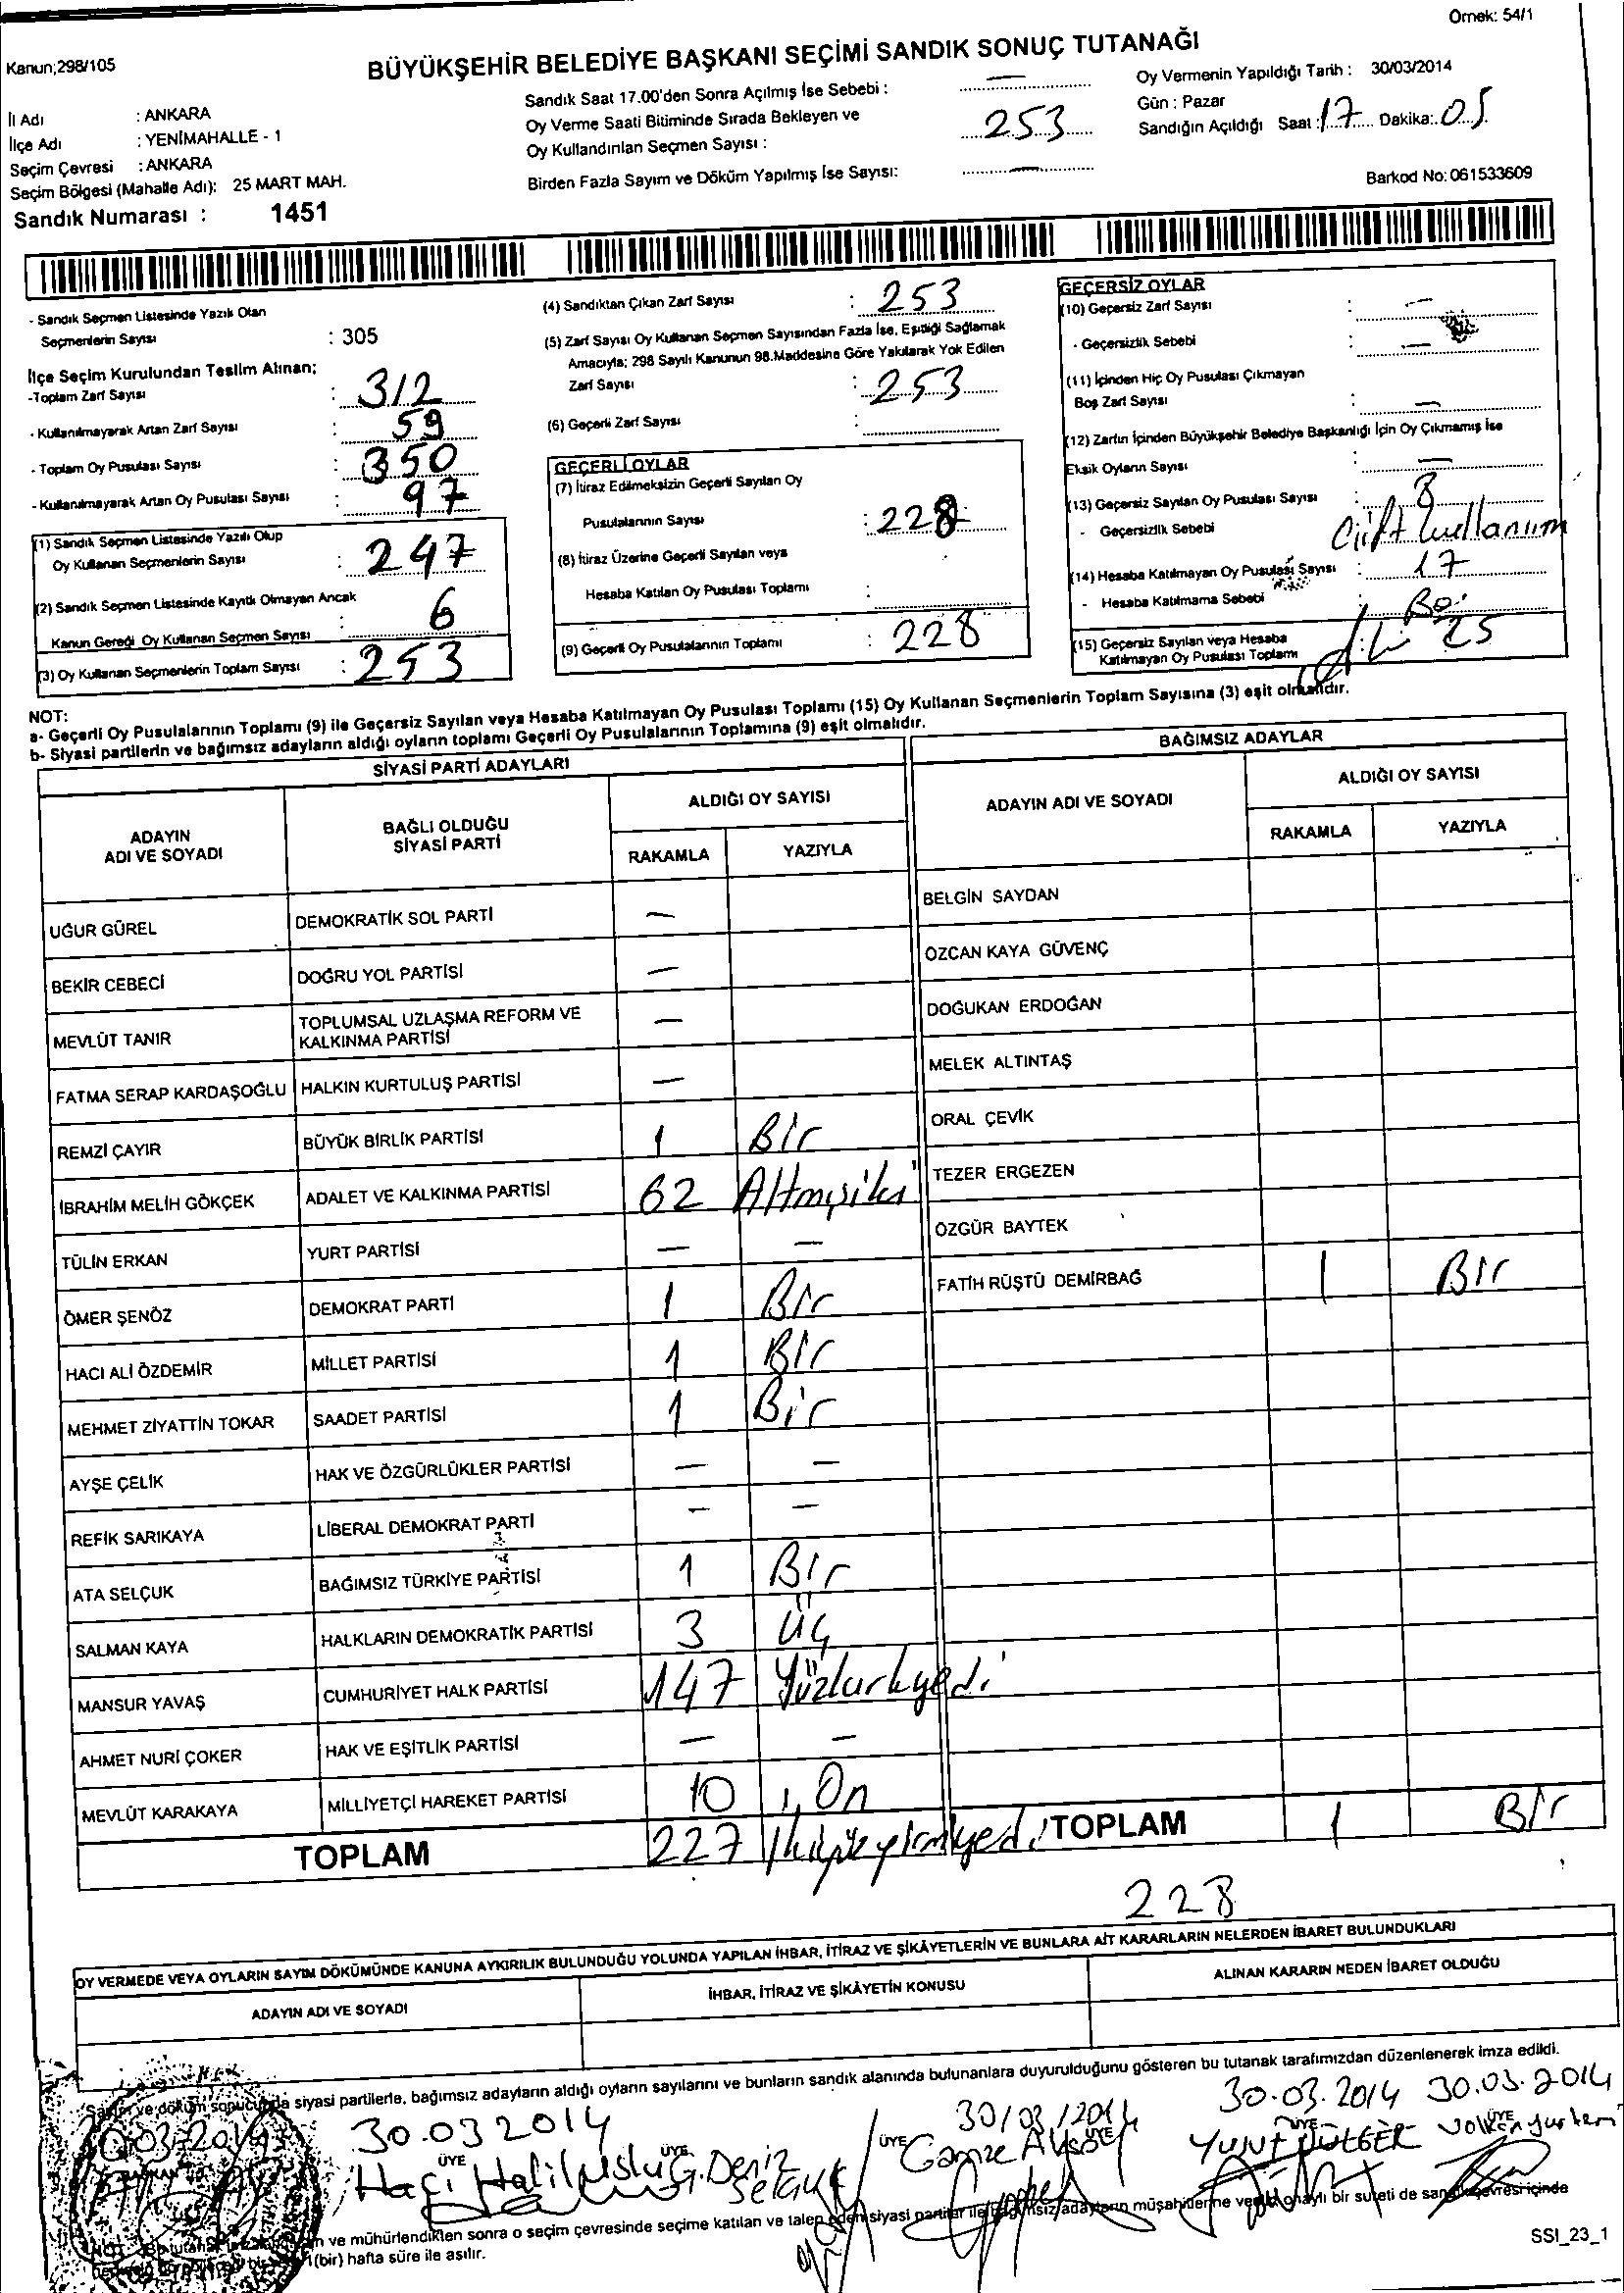 Örnek: 54/1
Kanun;298/105
BÜYÜKŞEHİR BELEDİYE BAŞKANI SEÇİMİ SANDIK SONUÇ TUTANAĞI
İl Adı : ANKARA
İlçe Adı : YENİMAHALLE - 1
Seçim Çevresi : ANKARA
Seçim Bölgesi (Mahalle Adı): 25 MART MAH.
Sandık Numarası : 1451
Sandık Saat 17.00'den Sonra Açılmış İse Sebebi : —
Oy Verme Saati Bitiminde Sırada Bekleyen ve
Oy Kullandırılan Seçmen Sayısı : 253
Birden Fazla Sayım ve Döküm Yapılmış İse Sayısı: —
Oy Vermenin Yapıldığı Tarih : 30/03/2014
Gün : Pazar
Sandığın Açıldığı Saat : 17 Dakika: 05
Barkod No: 061533609
- Sandık Seçmen Listesinde Yazılı Olan
Seçmenlerin Sayısı : 305
İlçe Seçim Kurulundan Teslim Alınan;
-Toplam Zarf Sayısı : 312
- Kullanılmayarak Artan Zarf Sayısı : 59
- Toplam Oy Pusulası Sayısı : 350
- Kullanılmayarak Artan Oy Pusulası Sayısı : 97
(1) Sandık Seçmen Listesinde Yazılı Olup
Oy Kullanan Seçmenlerin Sayısı : 247
(2) Sandık Seçmen Listesinde Kayıtlı Olmayan Ancak
Kanun Gereği Oy Kullanan Seçmen Sayısı : 6
(3) Oy Kullanan Seçmenlerin Toplam Sayısı : 253
(4) Sandıktan Çıkan Zarf Sayısı : 253
(5) Zarf Sayısı Oy Kullanan Seçmen Sayısından Fazla İse, Eşitliği Sağlamak
Amacıyla; 298 Sayılı Kanunun 98.Maddesine Göre Yakılarak Yok Edilen
Zarf Sayısı : 253
(6) Geçerli Zarf Sayısı :
GEÇERLİ OYLAR
(7) İtiraz Edilmeksizin Geçerli Sayılan Oy
Pusulalarının Sayısı : 228
(8) İtiraz Üzerine Geçerli Sayılan veya
Hesaba Katılan Oy Pusulası Toplamı :
(9) Geçerli Oy Pusulalarının Toplamı : 228
GEÇERSİZ OYLAR
(10) Geçersiz Zarf Sayısı : —
- Geçersizlik Sebebi : —
(11) İçinden Hiç Oy Pusulası Çıkmayan
Boş Zarf Sayısı : —
(12) Zarfın İçinden Büyükşehir Belediye Başkanlığı İçin Oy Çıkmamış İse
Eksik Oyların Sayısı : —
(13) Geçersiz Sayılan Oy Pusulası Sayısı : 8
- Geçersizlik Sebebi Çift kullanım
(14) Hesaba Katılmayan Oy Pusulası Sayısı : 17
- Hesaba Katılmama Sebebi : Boş
(15) Geçersiz Sayılan veya Hesaba
Katılmayan Oy Pusulası Toplamı : 25
NOT:
a- Geçerli Oy Pusulalarının Toplamı (9) ile Geçersiz Sayılan veya Hesaba Katılmayan Oy Pusulası Toplamı (15) Oy Kullanan Seçmenlerin Toplam Sayısına (3) eşit olmalıdır.
b- Siyasi partilerin ve bağımsız adayların aldığı oyların toplamı Geçerli Oy Pusulalarının Toplamına (9) eşit olmalıdır.
SİYASİ PARTİ ADAYLARI
ADAYIN ADI VE SOYADI
BAĞLI OLDUĞU SİYASİ PARTİ
ALDIĞI OY SAYISI
RAKAMLA YAZIYLA
UĞUR GÜREL DEMOKRATİK SOL PARTİ —
BEKİR CEBECİ DOĞRU YOL PARTİSİ —
MEVLÜT TANIR TOPLUMSAL UZLAŞMA REFORM VE KALKINMA PARTİSİ —
FATMA SERAP KARDAŞOĞLU HALKIN KURTULUŞ PARTİSİ —
REMZİ ÇAYIR BÜYÜK BİRLİK PARTİSİ 1 Bir
İBRAHİM MELİH GÖKÇEK ADALET VE KALKINMA PARTİSİ 62 Altmışiki
TÜLİN ERKAN YURT PARTİSİ — —
ÖMER ŞENÖZ DEMOKRAT PARTİ 1 Bir
HACI ALİ ÖZDEMİR MİLLET PARTİSİ 1 Bir
MEHMET ZİYATTİN TOKAR SAADET PARTİSİ 1 Bir
AYŞE ÇELİK HAK VE ÖZGÜRLÜKLER PARTİSİ — —
REFİK SARIKAYA LİBERAL DEMOKRAT PARTİ — —
ATA SELÇUK BAĞIMSIZ TÜRKİYE PARTİSİ 1 Bir
SALMAN KAYA HALKLARIN DEMOKRATİK PARTİSİ 3 Üç
MANSUR YAVAŞ CUMHURİYET HALK PARTİSİ 147 Yüzkırkyedi
AHMET NURİ ÇOKER HAK VE EŞİTLİK PARTİSİ — —
MEVLÜT KARAKAYA MİLLİYETÇİ HAREKET PARTİSİ 10 On
TOPLAM 227 İkiyüzyirmiyedi
BAĞIMSIZ ADAYLAR
ADAYIN ADI VE SOYADI
ALDIĞI OY SAYISI
RAKAMLA YAZIYLA
BELGİN SAYDAN
ÖZCAN KAYA GÜVENÇ
DOĞUKAN ERDOĞAN
MELEK ALTINTAŞ
ORAL ÇEVİK
TEZER ERGEZEN
ÖZGÜR BAYTEK
FATİH RÜŞTÜ DEMİRBAĞ 1 Bir
TOPLAM 1 Bir
228
OY VERMEDE VEYA OYLARIN SAYIM DÖKÜMÜNDE KANUNA AYKIRILIK BULUNDUĞU YOLUNDA YAPILAN İHBAR, İTİRAZ VE ŞİKÂYETLERİN VE BUNLARA AİT KARARLARIN NELERDEN İBARET BULUNDUKLARI
ADAYIN ADI VE SOYADI İHBAR, İTİRAZ VE ŞİKÂYETİN KONUSU ALINAN KARARIN NEDEN İBARET OLDUĞU
Sayım ve döküm sonucunda siyasi partilerle, bağımsız adayların aldığı oyların sayılarını ve bunların sandık alanında bulunanlara duyurulduğunu gösteren bu tutanak tarafımızdan düzenlenerek imza edildi.
30.03.2014 30/03/2014 30.03.2014 30.03.2014
ÜYE ÜYE ÜYE ÜYE ÜYE ÜYE
Haci Halil Uslu G. Deniz Selçuk Gamze Aksoy Yusuf Volkan
ve mühürlendikten sonra o seçim çevresinde seçime katılan ve talep eden siyasi partiler ile bağımsız adayların müşahitlerine onaylı bir sureti de sandık çevresi içinde
(bir) hafta süre ile asılır.
SSI_23_1